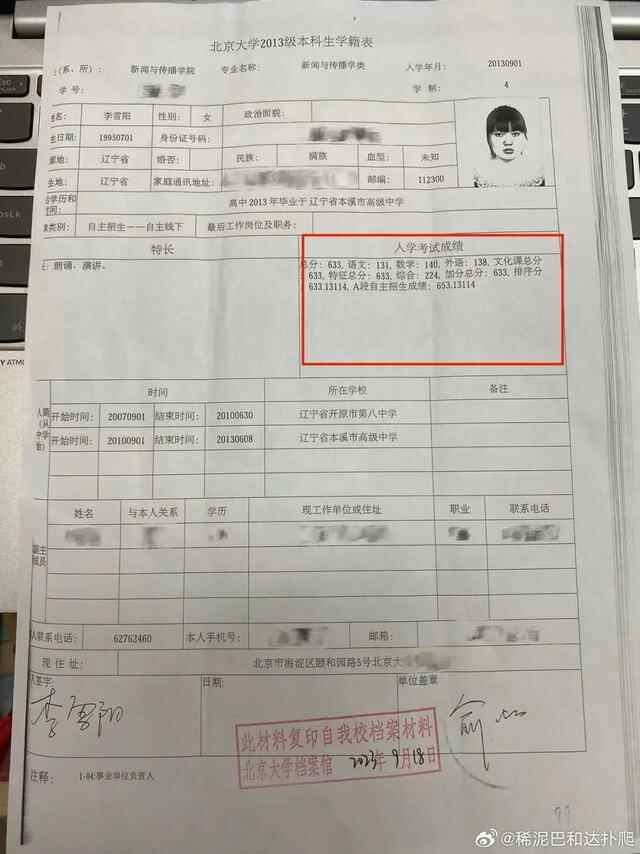 北京大学2013级本科生学籍表
(系、所): 新闻与传播学院 专业名称: 新闻与传播学类 入学年月: 20130901
学 号: 学 制: 4
姓名: 李雪阳 性别: 女 政治面貌:
生日期: 19950701 身份证号码:
辽宁省 婚否: 民族: 满族 血型: 未知
生地: 辽宁省 家庭通讯地址: 邮编: 112300
学历和 高中2013年毕业于辽宁省本溪市高级中学
类别: 自主招生——自主线下 最后工作岗位及职务:
特长 入学考试成绩
朗诵、演讲。
总分: 633, 语文: 131, 数学: 140, 外语: 138, 文化课总分
633, 特征总分: 633, 综合: 224, 加分总分: 633, 排序分
633.13114, A段自主招生成绩: 653.13114
时间 所在学校 备注
开始时间: 20070901 结束时间: 20100630 辽宁省开原市第八中学
开始时间: 20100901 结束时间: 20130608 辽宁省本溪市高级中学
姓名 与本人关系 学历 现工作单位或住址 职业 联系电话
人联系电话: 62762460 本人手机号: 邮箱:
现 住 址 北京市海淀区颐和园路5号北京大
签字: 日期: 单位盖章
李雪阳
此材料复印自我校档案材料
北京大学档案馆 2023年9月18日
注释: 1-04:事业单位负责人
99
@稀泥巴和达扑爬